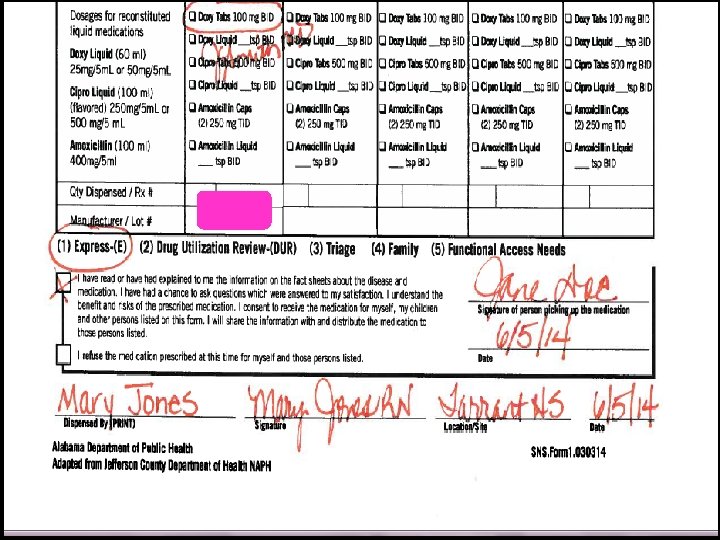 Dosages for reconstituted liquid medications
Doxy Liquid (60 ml) 25mg/5mL or 50mg/5mL
Cipro Liquid (100 ml) (flavored) 250mg/5mL or 500 mg/5 mL
Amoxicillin (100 ml) 400mg/5ml
❑ Doxy Tabs 100 mg BID ❑ Doxy Tabs 100 mg BID ❑ Doxy Tabs 100 mg BID ❑ Doxy Tabs 100 mg BID ❑ Doxy Tabs 100 mg BID
❑ Doxy Liquid __tsp BID ❑ Doxy Liquid __tsp BID ❑ Doxy Liquid __tsp BID ❑ Doxy Liquid __tsp BID ❑ Doxy Liquid __tsp BID
❑ Cipro Tabs 500 mg BID ❑ Cipro Tabs 500 mg BID ❑ Cipro Tabs 500 mg BID ❑ Cipro Tabs 500 mg BID ❑ Cipro Tabs 500 mg BID
❑ Cipro Liquid __tsp BID ❑ Cipro Liquid __tsp BID ❑ Cipro Liquid __tsp BID ❑ Cipro Liquid __tsp BID ❑ Cipro Liquid __tsp BID
❑ Amoxicillin Caps ❑ Amoxicillin Caps ❑ Amoxicillin Caps ❑ Amoxicillin Caps ❑ Amoxicillin Caps
(2) 250 mg TID (2) 250 mg TID (2) 250 mg TID (2) 250 mg TID (2) 250 mg TID
❑ Amoxicillin Liquid ❑ Amoxicillin Liquid ❑ Amoxicillin Liquid ❑ Amoxicillin Liquid ❑ Amoxicillin Liquid
__ tsp BID __ tsp BID __ tsp BID __ tsp BID __ tsp BID
Qty Dispensed / Rx #
Manufacturer / Lot #
(1) Express-(E) (2) Drug Utilization Review-(DUR) (3) Triage (4) Family (5) Functional Access Needs
X I have read or have had explained to me the information on the fact sheets about the disease and
medication. I have had a chance to ask questions which were answered to my satisfaction. I understand the
benefit and risks of the prescribed medication. I consent to receive the medication for myself, my children
and other persons listed on this form. I will share the information with and distribute the medication to
those persons listed.
Jane Doe
Signature of person picking up the medication
6/5/14
Date
I refuse the medication prescribed at this time for myself and those persons listed.
Mary Jones Mary Jones RN Tarrant HS 6/5/14
Dispensed By (PRINT) Signature Location/Site Date
Alabama Department of Public Health
Adapted from Jefferson County Department of Health NAPH
SNS.Form1.030314